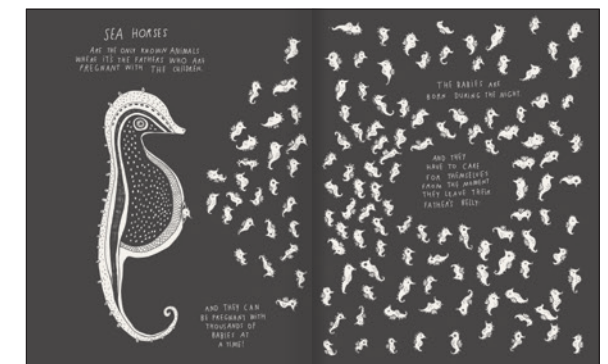 SEA HORSES
ARE THE ONLY KNOWN ANIMALS
WHERE IT'S THE FATHERS WHO ARE
PREGNANT WITH THE CHILDREN.
AND THEY CAN
BE PREGNANT WITH
THOUSANDS OF
BABIES AT
A TIME!
THE BABIES ARE
BORN DURING THE NIGHT
AND THEY
HAVE TO CARE
FOR THEMSELVES
FROM THE MOMENT
THEY LEAVE THEIR
FATHER'S BELLY.